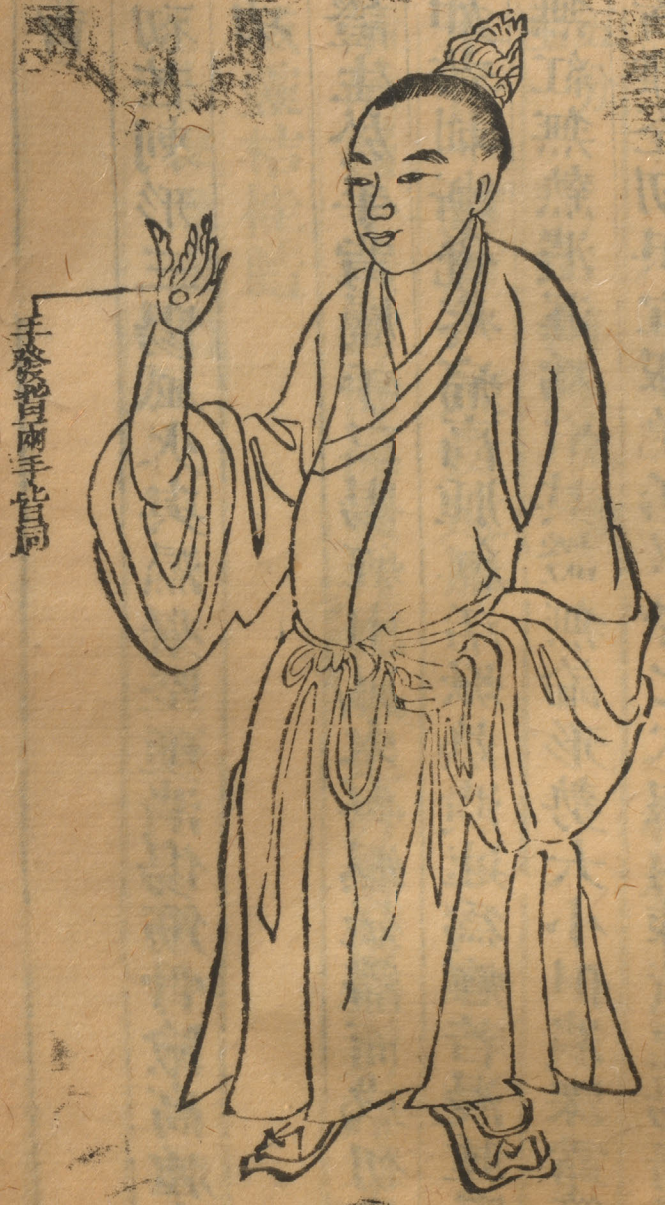 手發背兩手皆同